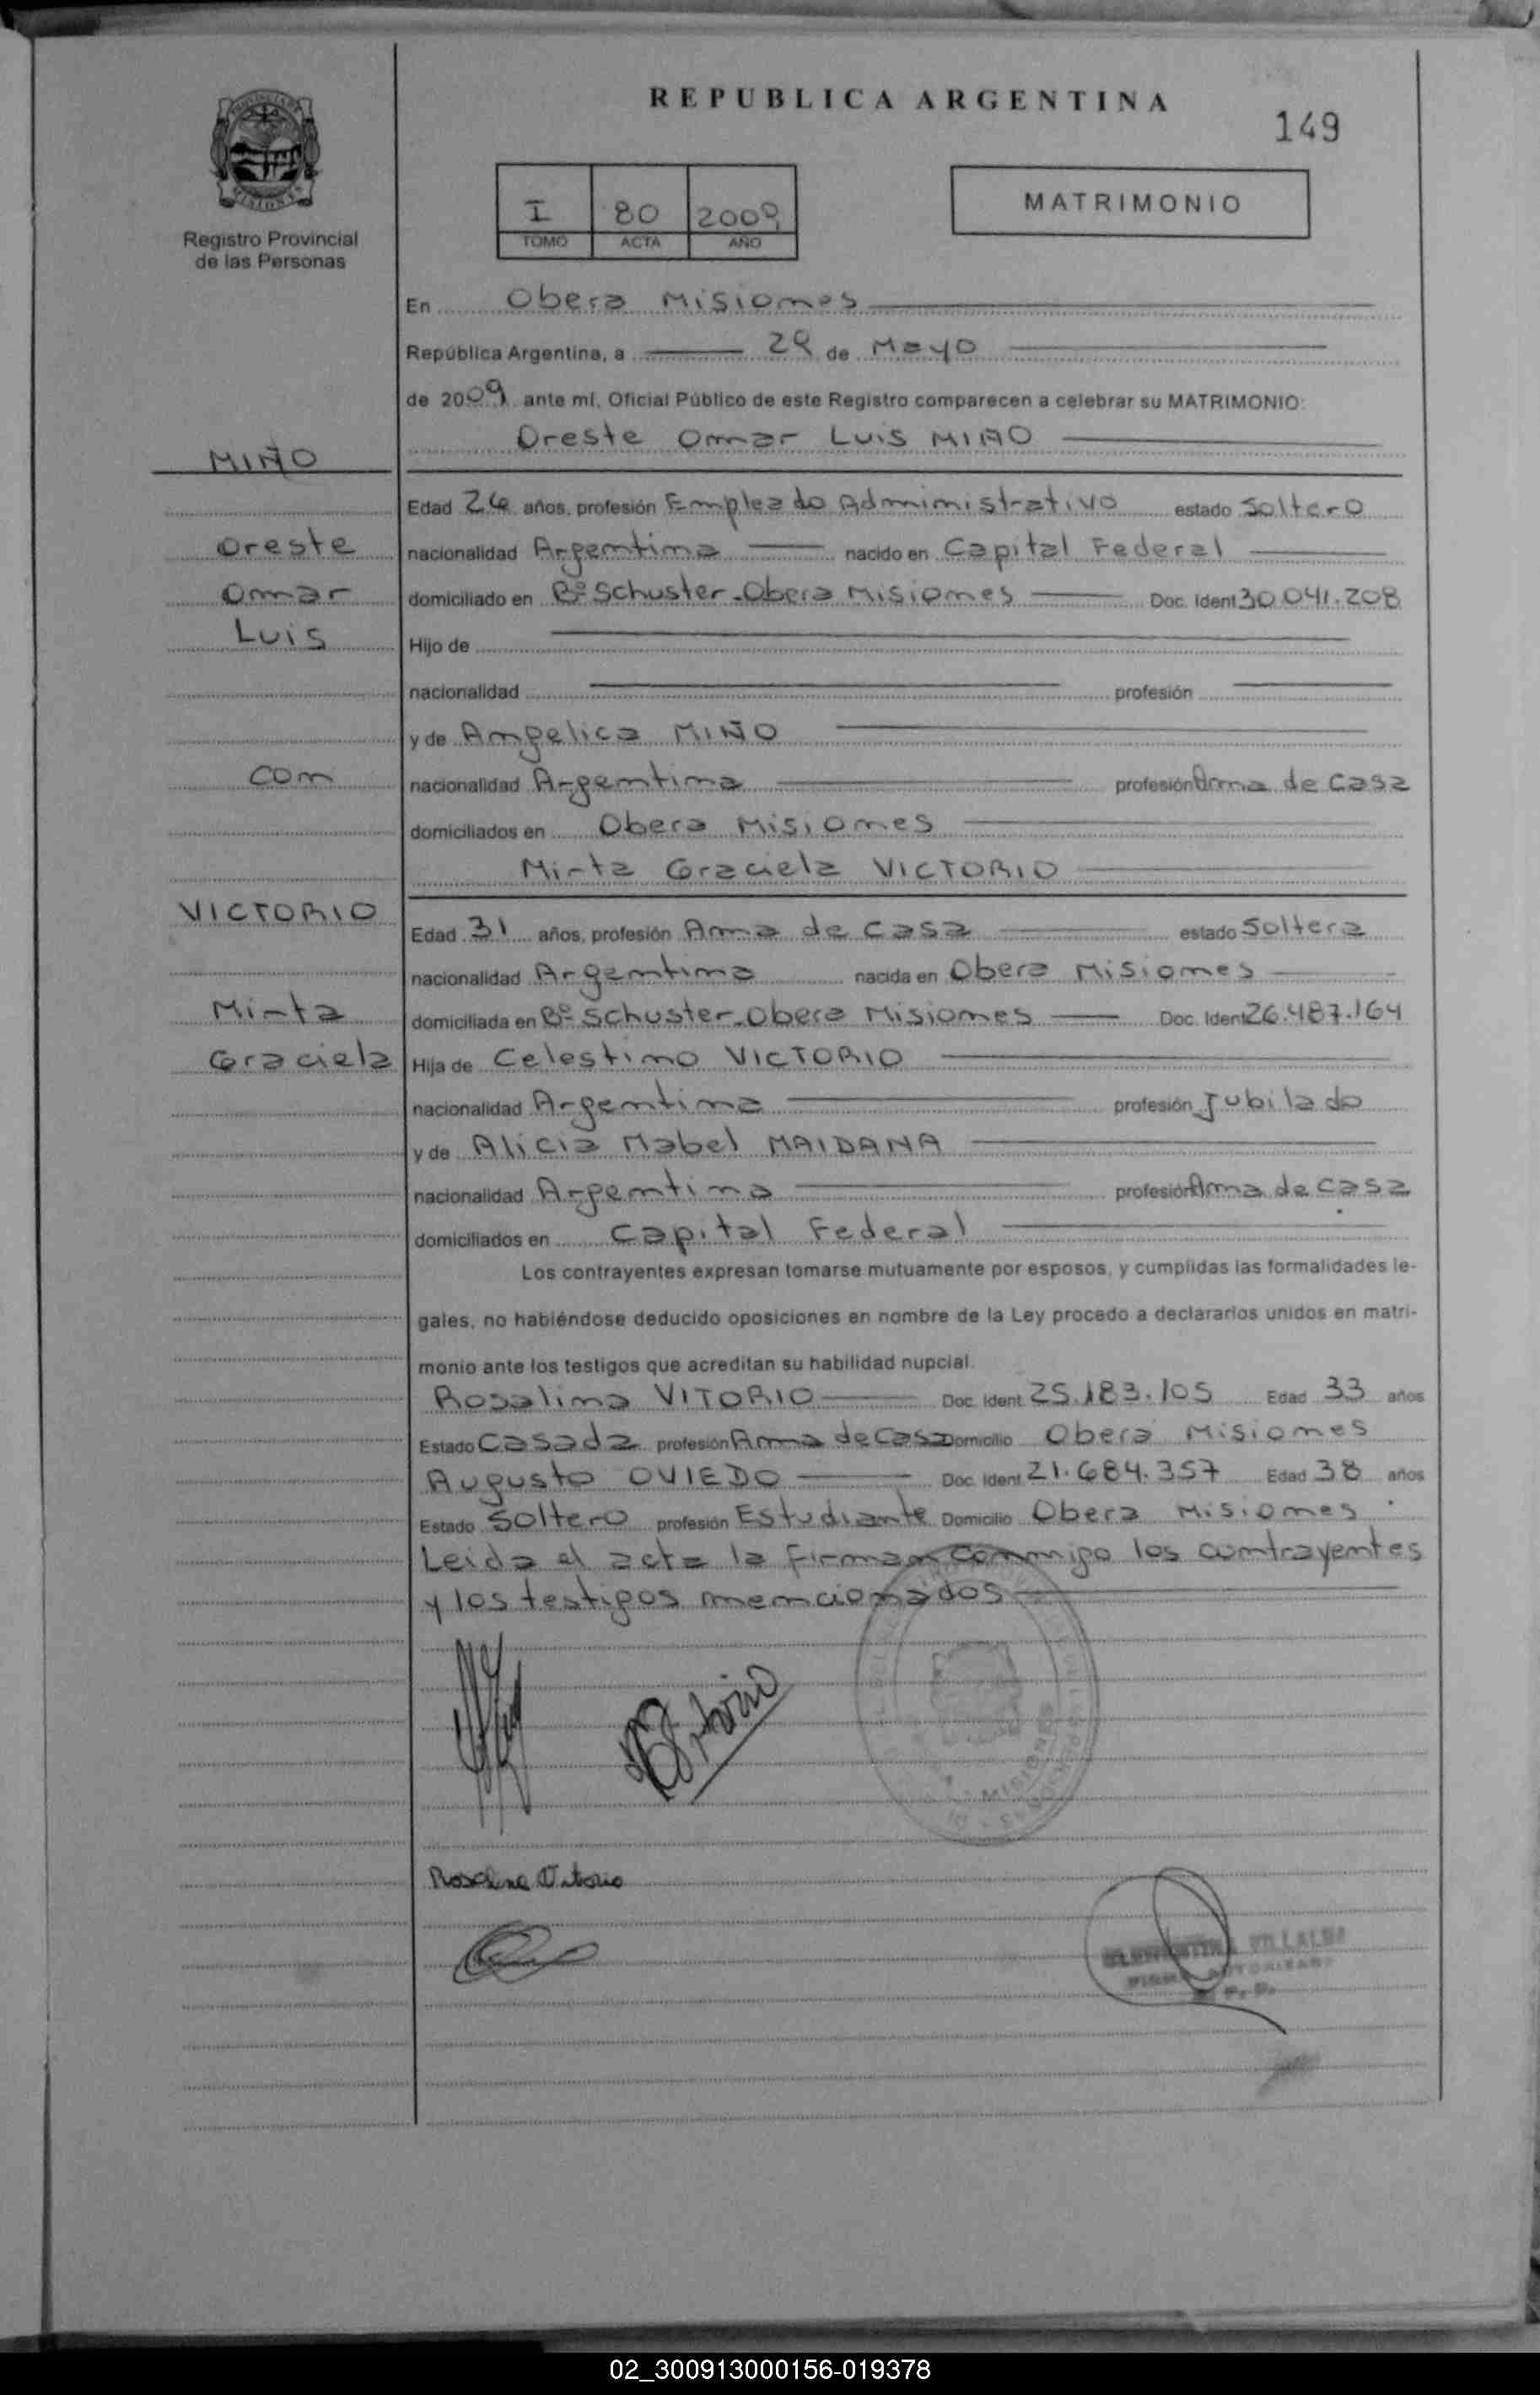 REPUBLICA ARGENTINA
149
I 80 2009
TOMO ACTA AÑO
MATRIMONIO
Registro Provincial
de las Personas
En Obera Misiones
República Argentina, a 29 de Mayo
de 2009 ante mí, Oficial Público de este Registro comparecen a celebrar su MATRIMONIO:
Oreste Omar Luis MIÑO
MIÑO
Edad 26 años, profesión Empleado Administrativo estado Soltero
Oreste
nacionalidad Argentina nacido en Capital Federal
Omar
domiciliado en Bº Schuster-Obera Misiones Doc. Ident 30.041.208
Luis
Hijo de
nacionalidad profesión
y de Angelica MIÑO
con
nacionalidad Argentina profesión Ama de casa
domiciliados en Obera Misiones
Mirta Graciela VICTORIO
VICTORIO
Edad 31 años, profesión Ama de casa estado Soltera
nacionalidad Argentina nacida en Obera Misiones
Mirta
domiciliada en Bº Schuster-Obera Misiones Doc. Ident 26.487.164
Graciela
Hija de Celestino VICTORIO
nacionalidad Argentina profesión Jubilado
y de Alicia Mabel MAIDANA
nacionalidad Argentina profesión Ama de casa
domiciliados en Capital Federal
Los contrayentes expresan tomarse mutuamente por esposos, y cumplidas las formalidades le-
gales, no habiéndose deducido oposiciones en nombre de la Ley procedo a declararlos unidos en matri-
monio ante los testigos que acreditan su habilidad nupcial.
Rosalina VITORIO Doc. Ident 25.183.105 Edad 33 años
Estado Casada profesión Ama de Casa Domicilio Obera Misiones
Augusto OVIEDO Doc. Ident 21.684.357 Edad 38 años
Estado Soltero profesión Estudiante Domicilio Obera Misiones
Leida el acta la firman conmigo los contrayentes
y los testigos mencionados
MISIONES
Rosalina Vitorio
VILLALBA
FIRMA AUTORIZADA
02_300913000156-019378